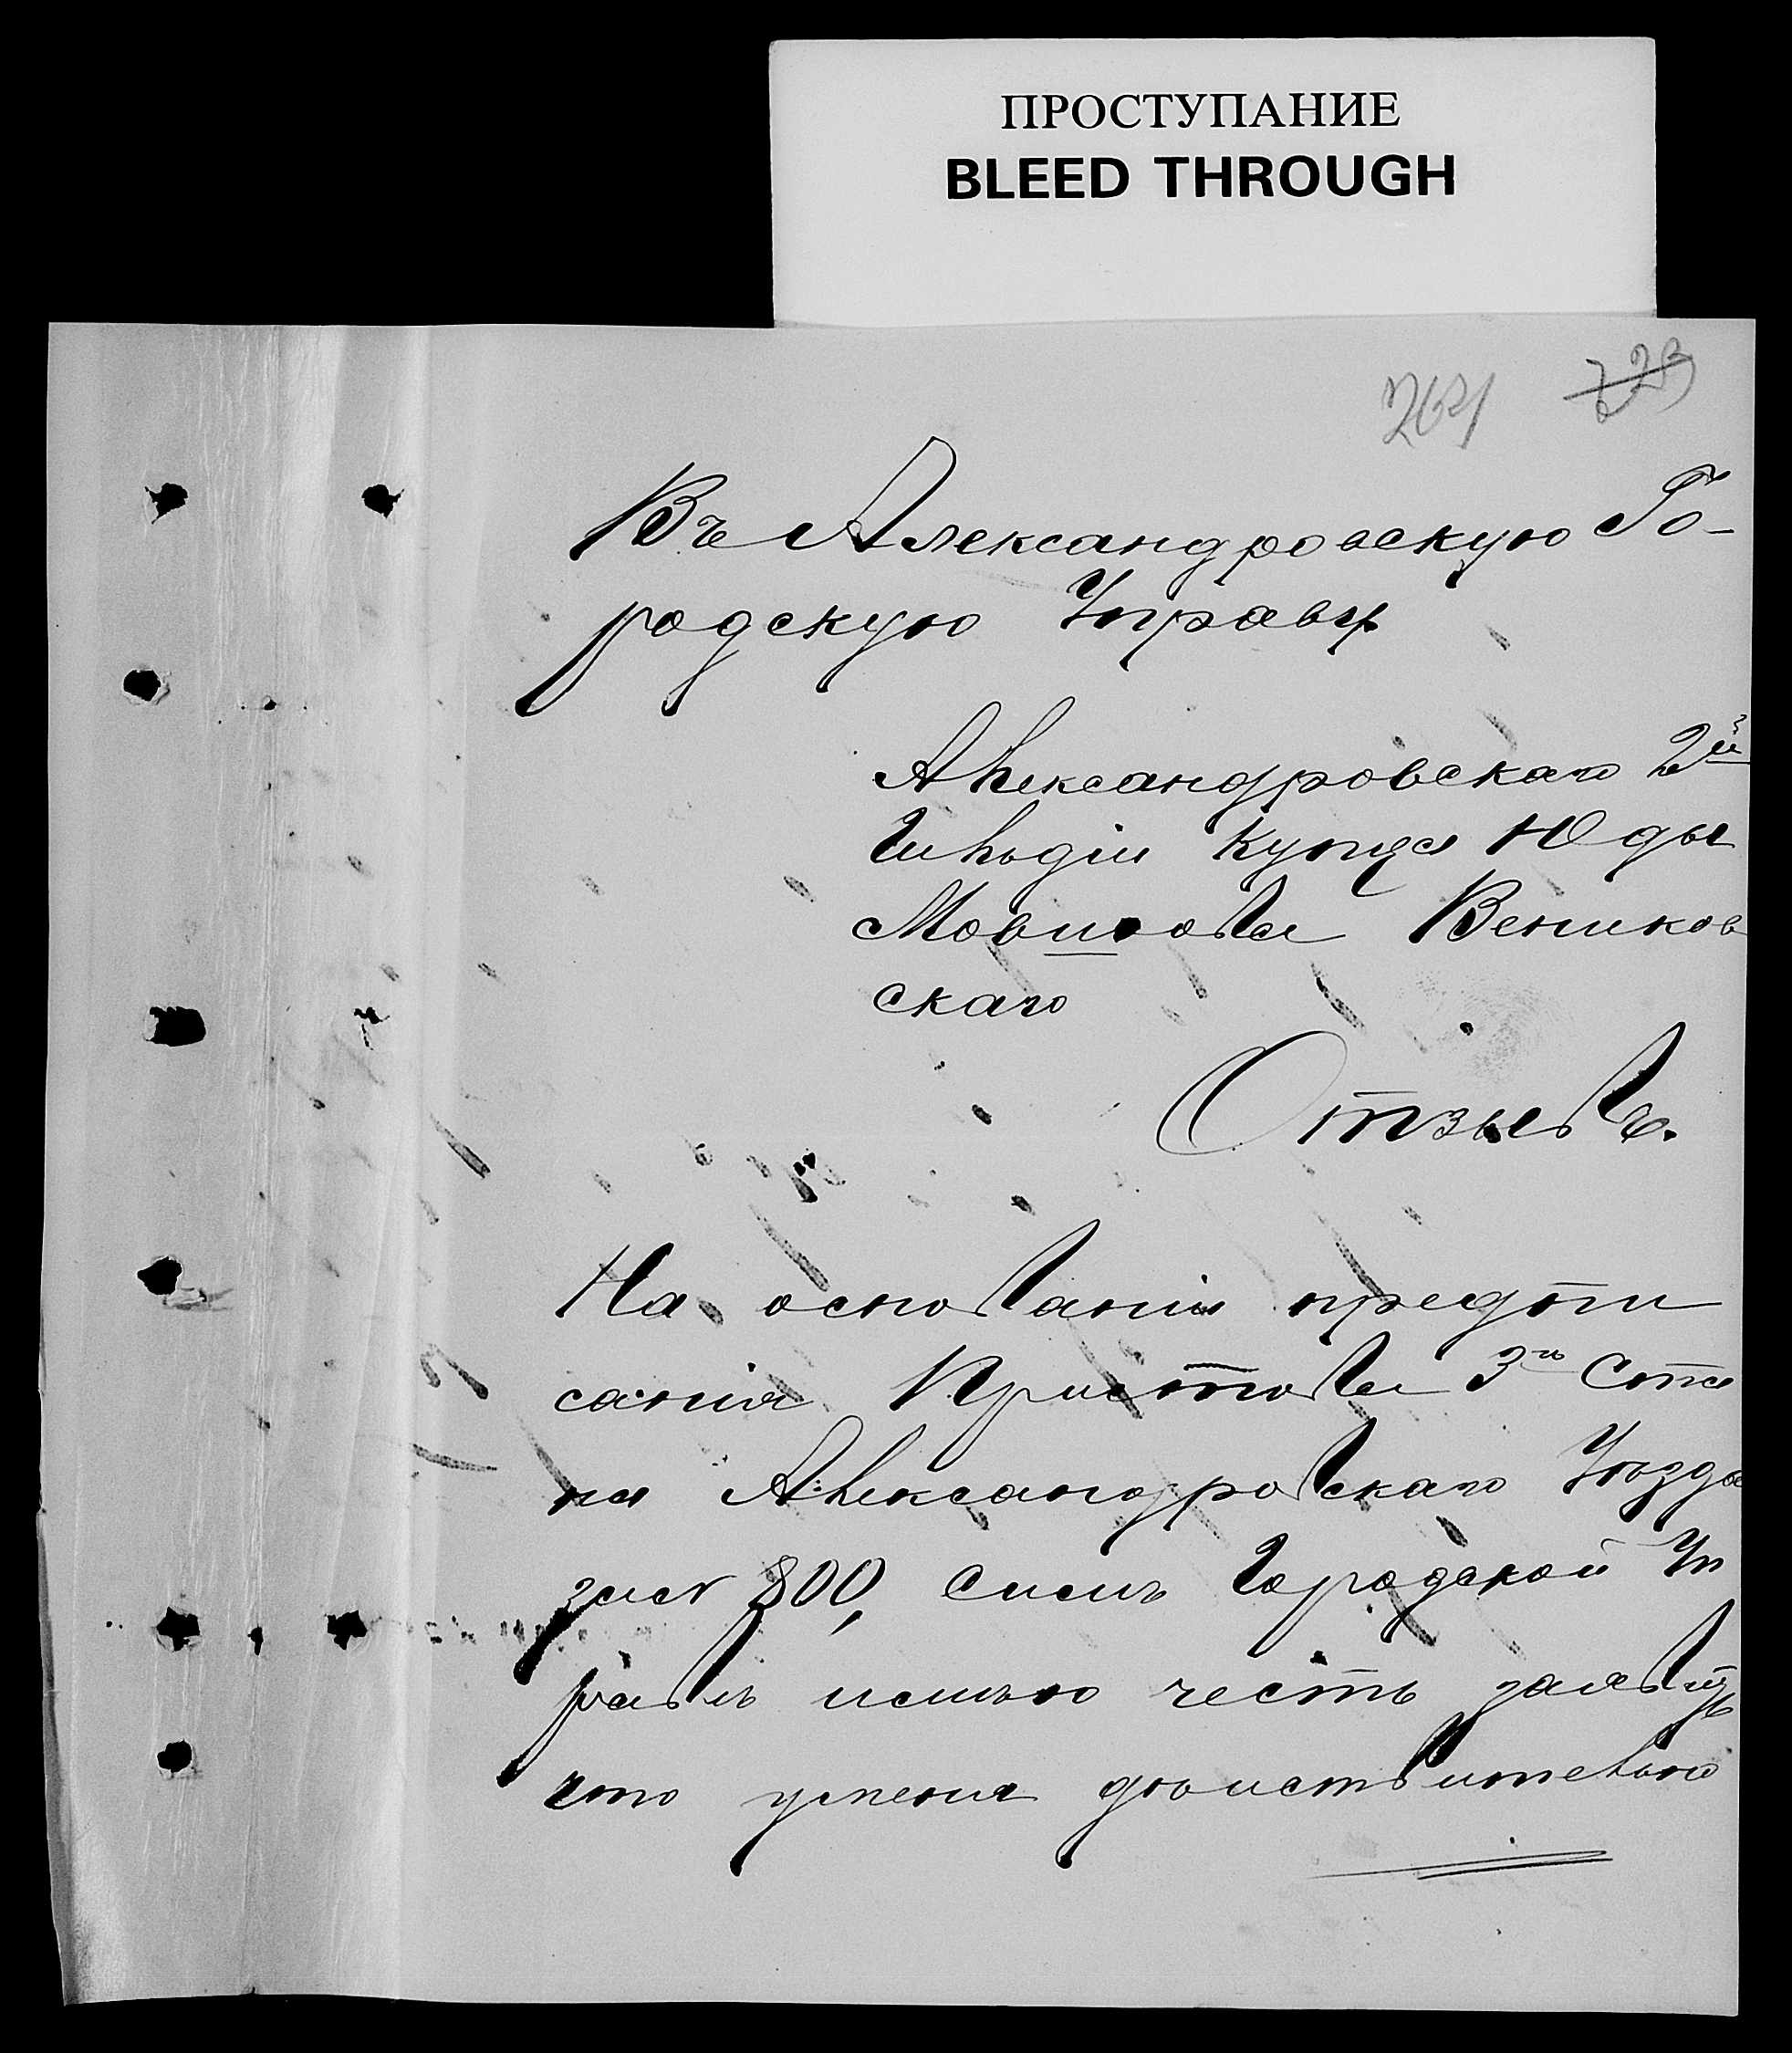 ПРОСТУПАНИЕ
BLEED THROUGH
Въ Александровскую Го-
родскую Управу
Александровскаго 2й
Гильдіи Купца Юды
Мовшова Веников
скаго
Отзывъ.
На основаніи предпи
санія Пристава 3го Ста
на Александровскаго Уѣзда
за № 800, Симъ Городской Уп
равѣ имѣю честь заявить
что уменя дѣйствительно